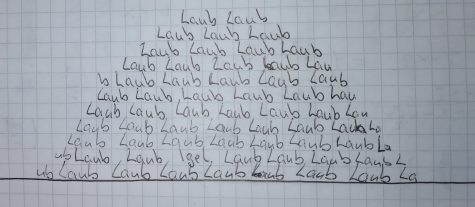 Laub Laub
Laub Laub Laub
Laub Laub Laub Laub
Laub Laub Laub Laub Lau
b Laub Laub Laub Laub Laub
Laub Laub Laub Laub Laub Lau
Laub Laub Laub Laub Laub Laub Lau
Laub Laub Laub Laub Laub Laub Laub La
Laub Laub Laub Laub Laub Laub Laub La
ub Laub Laub Igel Laub Laub Laub Laub L
ub Laub Laub Laub Laub Laub Laub Laub La